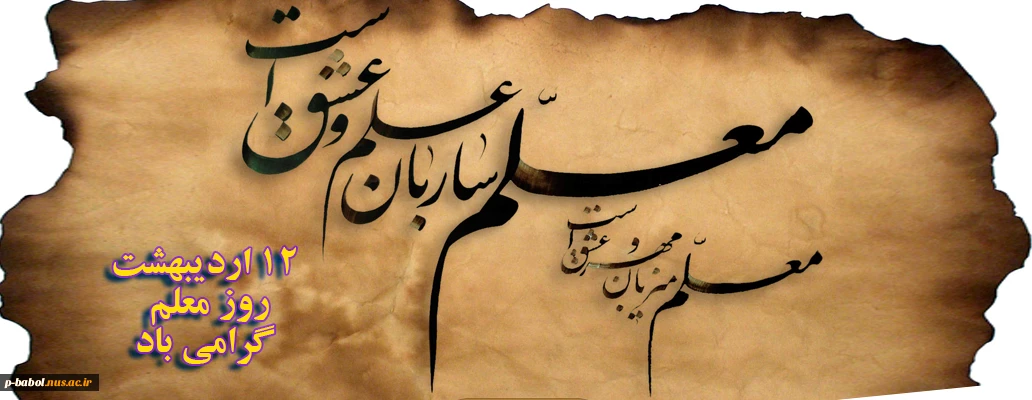 معلّم ساربان علم و عشق است
معلّم میزبان مهر و عشق است
۱۲ اردیبهشت
روز معلم
گرامی باد
p-babol.nus.ac.ir